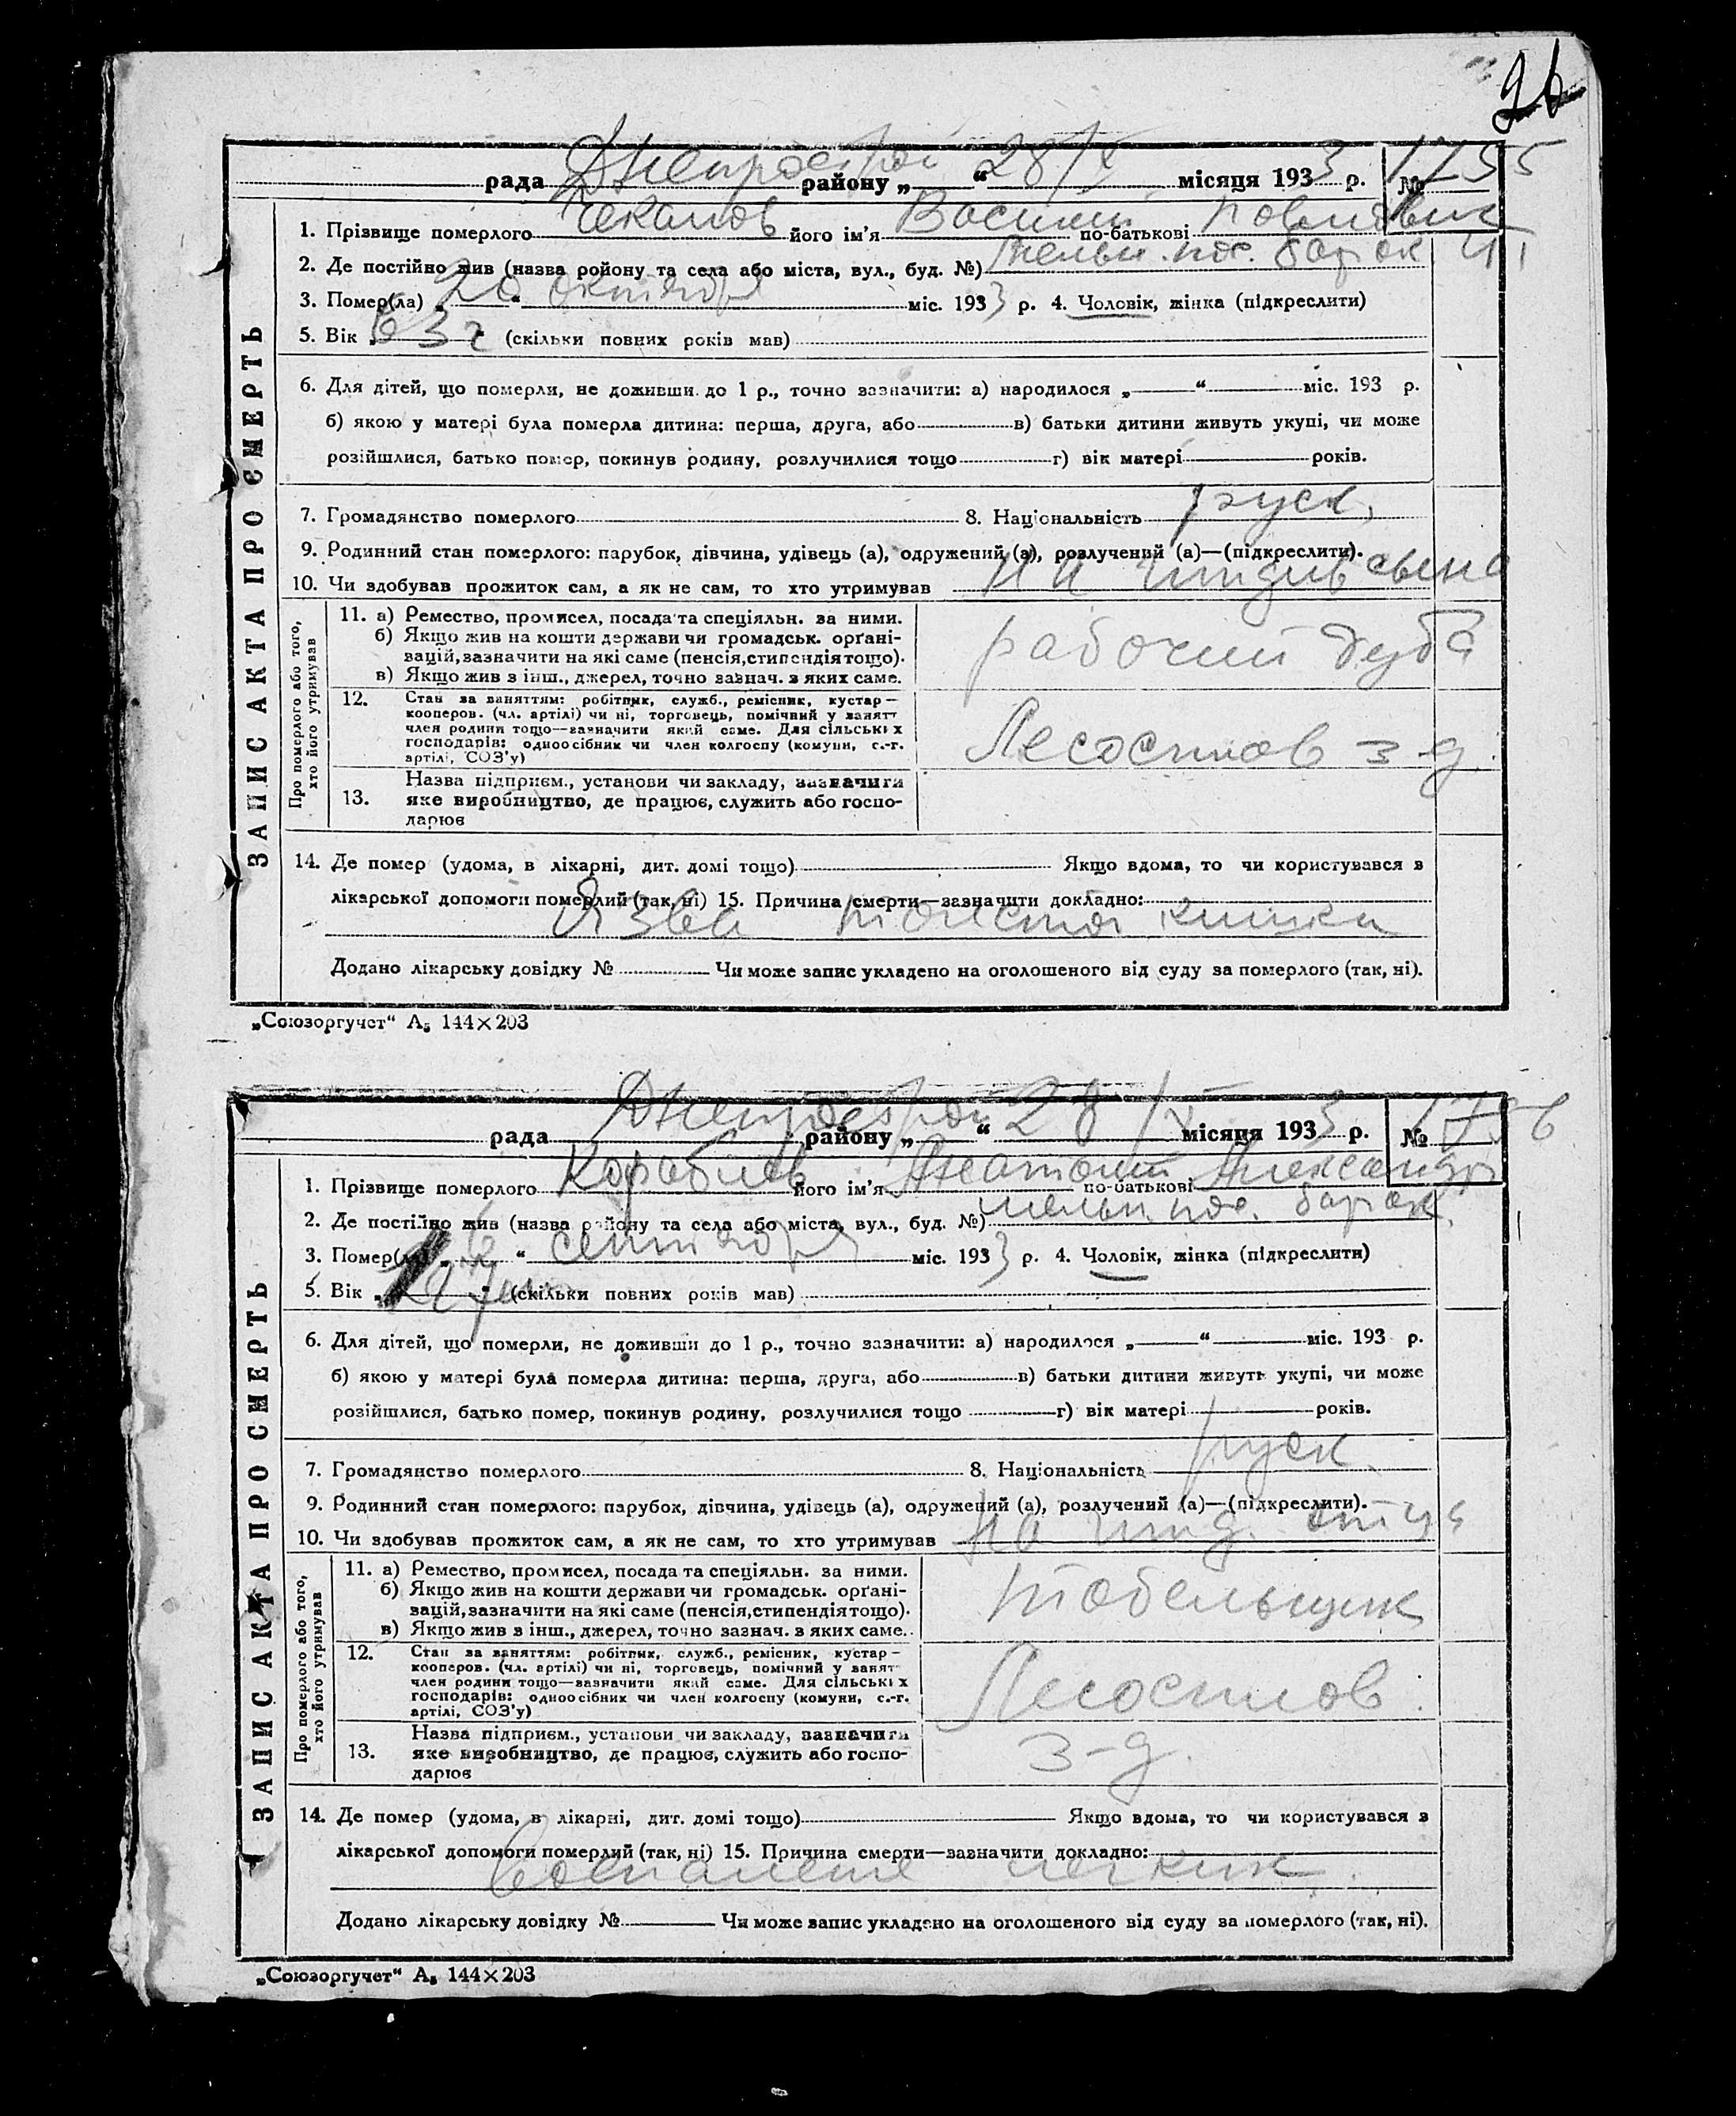 26
рада Днепрострой району „ 28/X “ місяця 1933 р. № 1755
1. Прізвище померлого Чеканов його ім'я Василий по-батькові Павлович
2. Де постійно жив (назва ройону та села або міста, вул., буд. №) барак
3. Помер(ла) „ 20 “ октября міс. 1933 р. 4. Чоловік, жінка (підкреслити)
5. Вік „ 63 г “ (скільки повних років мав)
6. Для дітей, що померли, не доживши до 1 р., точно зазначити: а) народилося „ “ міс. 193 р.
б) якою у матері була померла дитина: перша, друга, або в) батьки дитини живуть укупі, чи може
розійшлися, батько помер, покинув родину, розлучилися тощо г) вік матері років.
7. Громадянство померлого 8. Національність руск.
9. Родинний стан померлого: парубок, дівчина, удівець (а), одружений (а), розлучений (а)—(підкреслити).
10. Чи здобував прожиток сам, а як не сам, то хто утримував на иждив сына
ЗАПИС АКТА ПРО СМЕРТЬ
Про померлого або того, хто його утримував
11. а) Ремество, промисел, посада та спеціяльн. за ними.
б) Якщо жив на кошти держави чи громадськ. орґані-
зацій, зазначити на які саме (пенсія, стипендія тощо).
в) Якщо жив з інш., джерел, точно зазнач. з яких саме.
рабочий
12. Стан за заняттям: робітник, служб., ремісник, кустар—
кооперов. (чл. артілі) чи ні, торговець, помічний у занятт
член родини тощо—зазначити який саме. Для сільських
господарів: одноосібник чи член колгоспу (комуни, с.-г.
артілі, СОЗ'у)
Лесопилов з-д.
13. Назва підприєм., установи чи закладу, зазначити
яке виробництво, де працює, служить або госпо-
дарює
14. Де помер (удома, в лікарні, дит. домі тощо) Якщо вдома, то чи користувався з
лікарської допомоги померлий (так, ні) 15. Причина смерти—зазначити докладно:
Язва толстой кишки
Додано лікарську довідку № Чи може запис укладено на оголошеного від суду за померлого (так, ні).
„Союзоргучет“ А₅ 144×203
рада Днепрострой району „ 28 “ /X місяця 1933 р. № 1756
1. Прізвище померлого Кораблев його ім'я Анатолий по-батькові Александр
2. Де постійно жив (назва району та села або міста, вул., буд. №) барак.
3. Помер(ла) „ “ сентября міс. 1933 р. 4. Чоловік, жінка (підкреслити)
5. Вік „ “ (скільки повних років мав)
6. Для дітей, що померли, не доживши до 1 р., точно зазначити: а) народилося „ “ міс. 193 р.
б) якою у матері була померла дитина: перша, друга, або в) батьки дитини живуть укупі, чи може
розійшлися, батько помер, покинув родину, розлучилися тощо г) вік матері років.
7. Громадянство померлого 8. Національність руск.
9. Родинний стан померлого: парубок, дівчина, удівець (а), одружений (а), розлучений (а)—(підкреслити).
10. Чи здобував прожиток сам, а як не сам, то хто утримував на ижд. отца
ЗАПИС АКТА ПРО СМЕРТЬ
Про померлого або того, хто його утримував
11. а) Ремество, промисел, посада та спеціяльн. за ними.
б) Якщо жив на кошти держави чи громадськ. орґані-
зацій, зазначити на які саме (пенсія, стипендія тощо).
в) Якщо жив з інш., джерел, точно зазнач. з яких саме.
табельщик
12. Стан за заняттям: робітник, служб., ремісник, кустар—
кооперов. (чл. артілі) чи ні, торговець, помічний у занятт
член родини тощо—зазначити який саме. Для сільських
господарів: одноосібник чи член колгоспу (комуни, с.-г.
артілі, СОЗ'у)
Лесопилов.
13. Назва підприєм., установи чи закладу, зазначити
яке виробництво, де працює, служить або госпо-
дарює
з-д.
14. Де помер (удома, в лікарні, дит. домі тощо) Якщо вдома, то чи користувався з
лікарської допомоги померлий (так, ні) 15. Причина смерти—зазначити докладно:
Воспаление легких.
Додано лікарську довідку № Чи може запис укладено на оголошеного від суду за померлого (так, ні).
„Союзоргучет“ А₅ 144×203